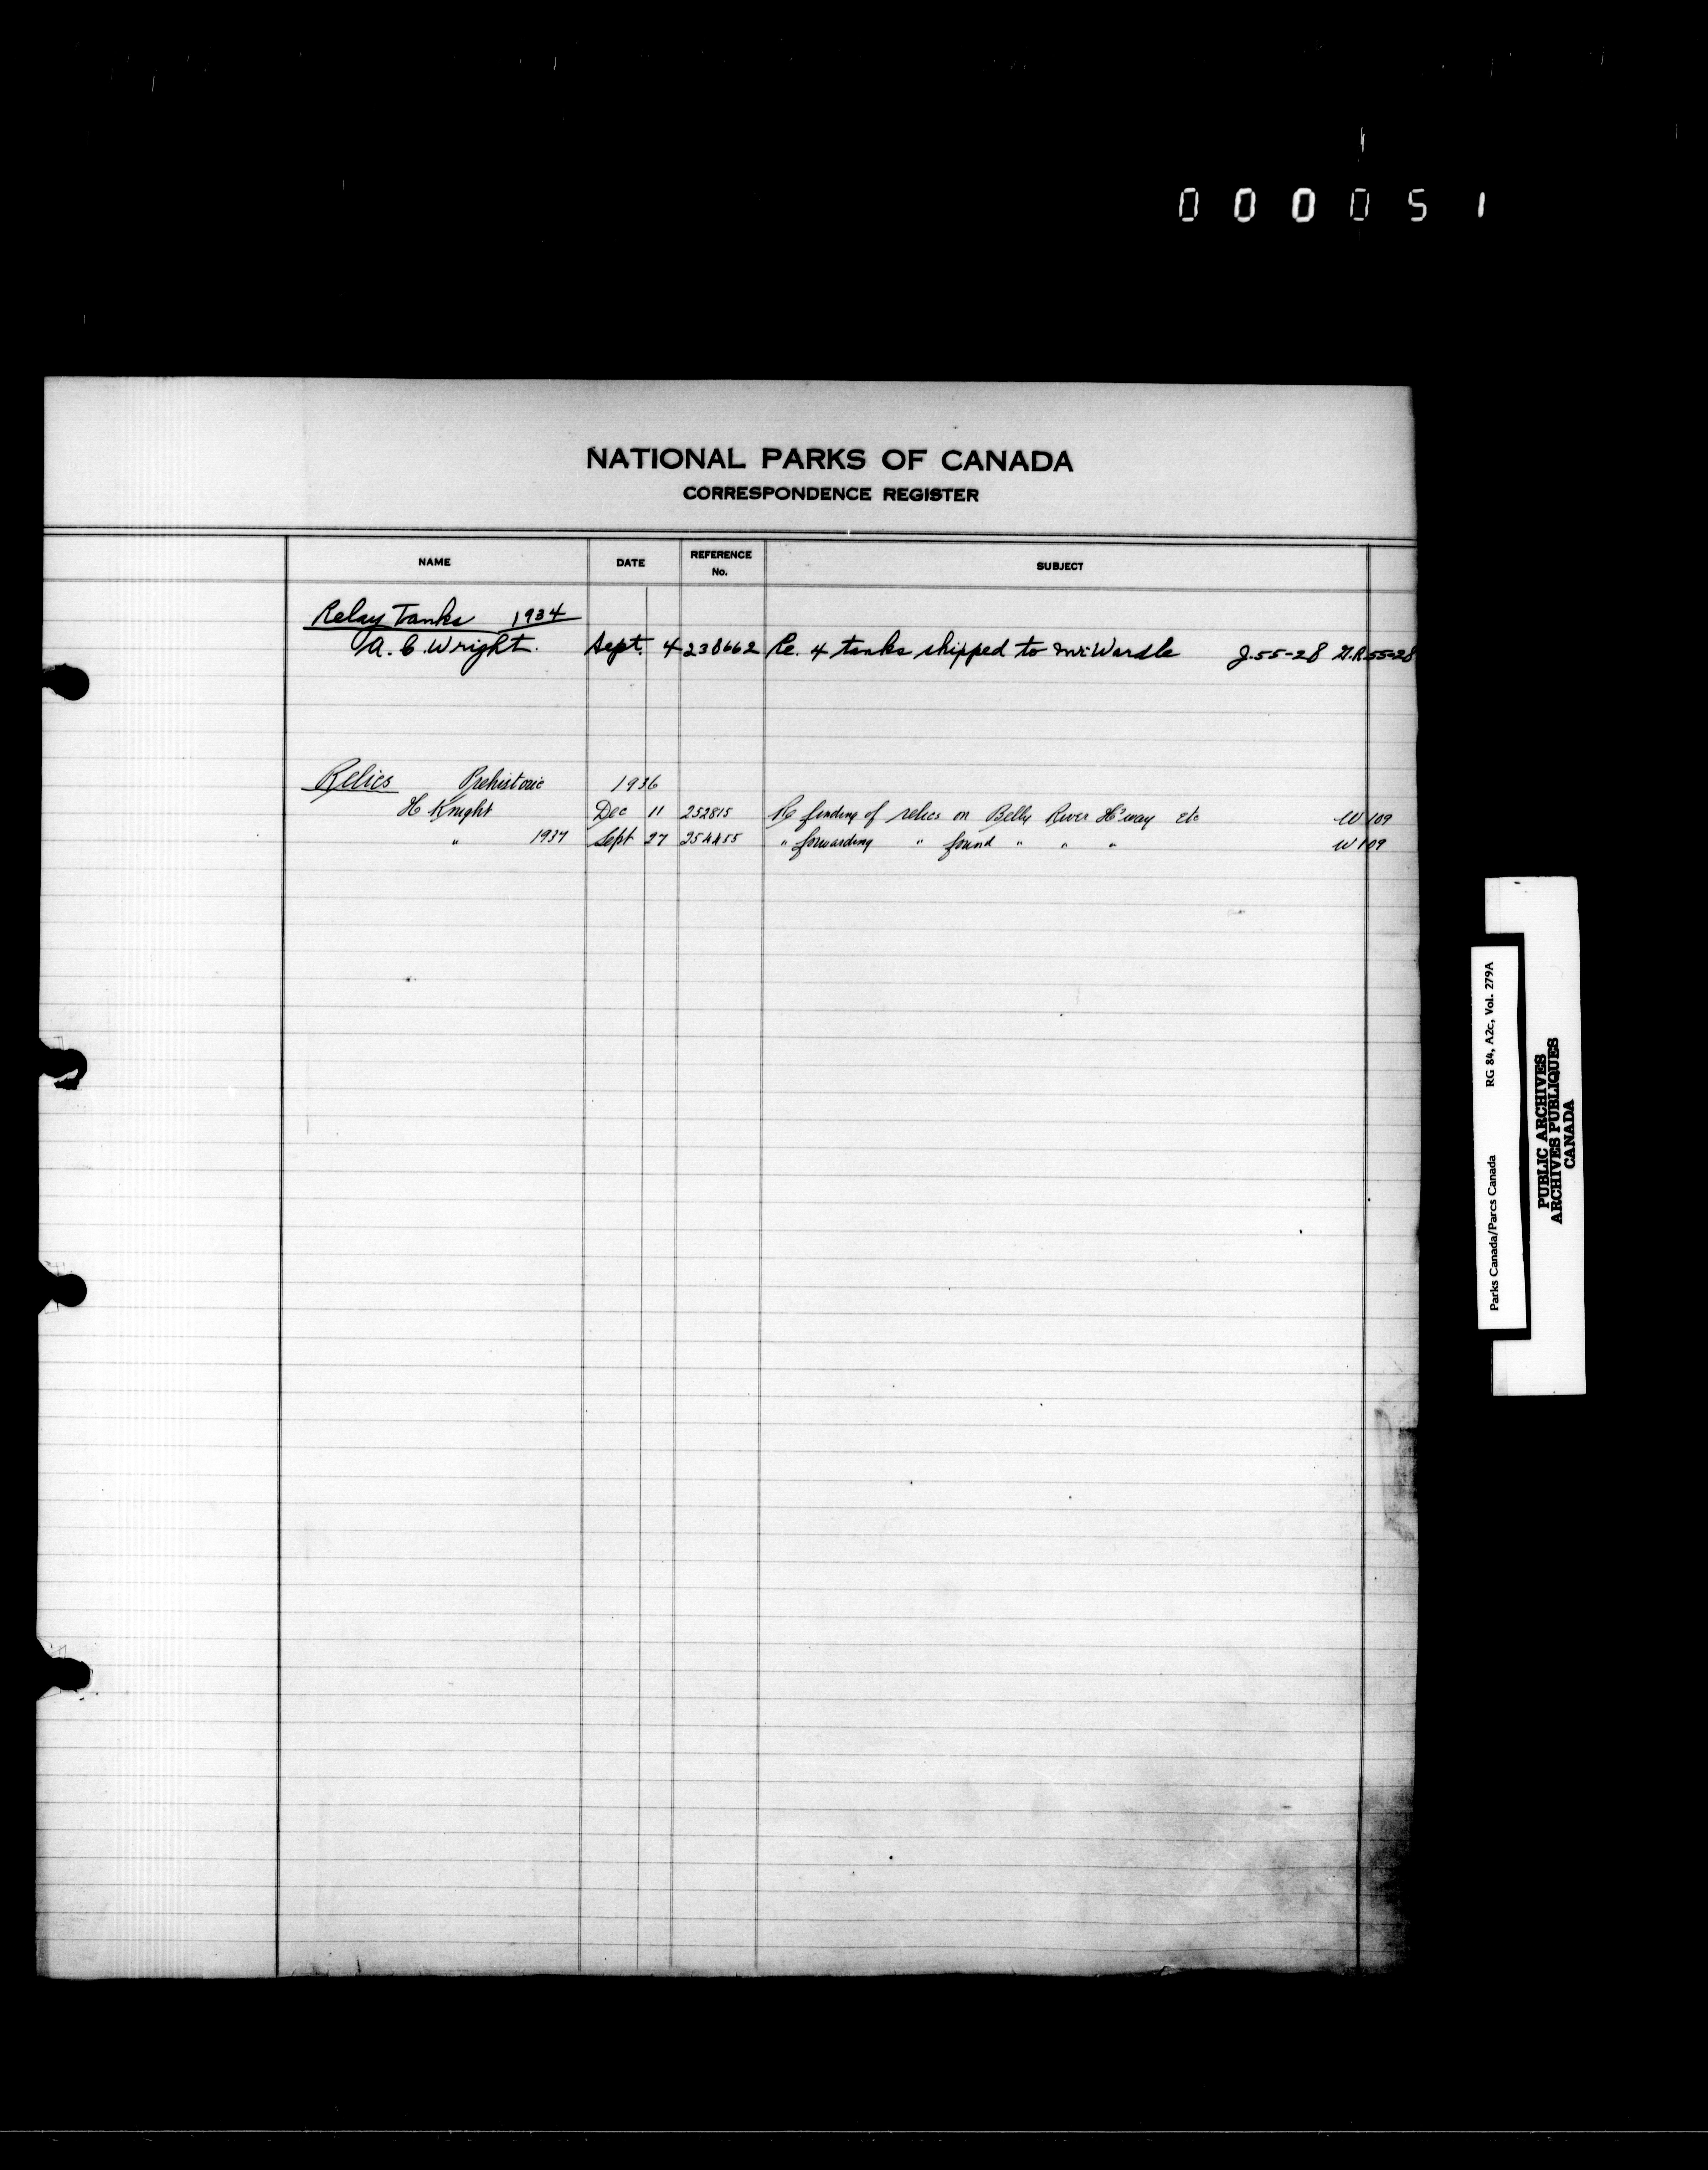 000051
NATIONAL PARKS OF CANADA
CORRESPONDENCE REGISTER
NAME DATE REFERENCE No. SUBJECT
Relay Tanks 1934
A. C. Wright. Sept. 4 238662 Re. 4 tanks shipped to Mr. Wardle J.55-28 G.R.55-28
Relics Prehistoric 1936
H Knight Dec 11 252815 Re finding of relics on Belly River H'way etc W109
" 1937 Sept 27 254455 " forwarding " found " " " W109
Parks Canada/Parcs Canada RG 84, A2c, Vol. 279A
PUBLIC ARCHIVES
ARCHIVES PUBLIQUES
CANADA